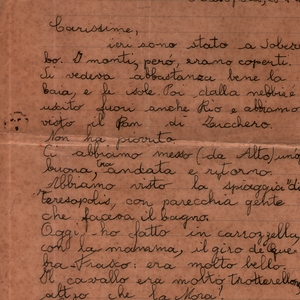 Carissime,
ieri sono stato a Sobera
bo. I monti, però, erano coperti.
Si vedeva abbastanza bene la
baia, e le isole. Poi, dalla nebbia è
uscito fuori anche Rio e abbiamo
visto il Pan di Zucchero.
Non ha piovuto.
Ci abbiamo messo (da Alto) un'o
buona, tra andata e ritorno.
Abbiamo visto la spiaggia "di
Teresopolis, con parecchia gente
che faceva il bagno.
Oggi ho fatto in carrozzella,
con la mamma, il giro di Que
bra-Frasco: era molto bello.
Il cavallo era molto trotterello
altro che la Mora!